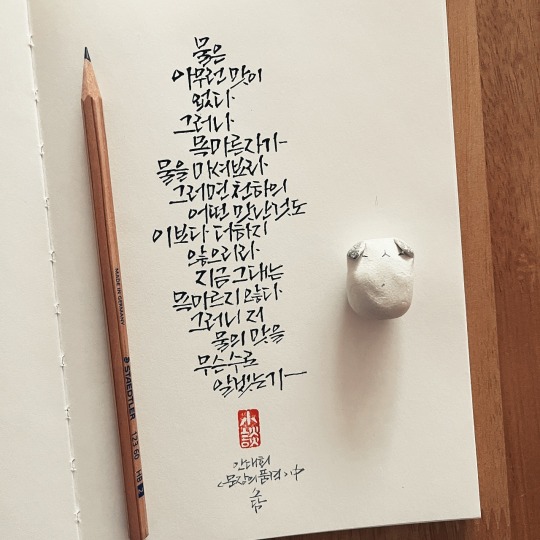 물은
아무런 맛이
없다.
그러나
목마른자가
물을 마셔보라
그러면 천하의
어떤 맛난것도
이보다 더하지
않으리라
지금 그대는
목마르지 않다.
그러니 저
물의 맛을
무슨수로
알겠는가
小談
안대회
<문장의 품격> 中
소담
MADE IN GERMANY
STAEDTLER
123 60 HB 2